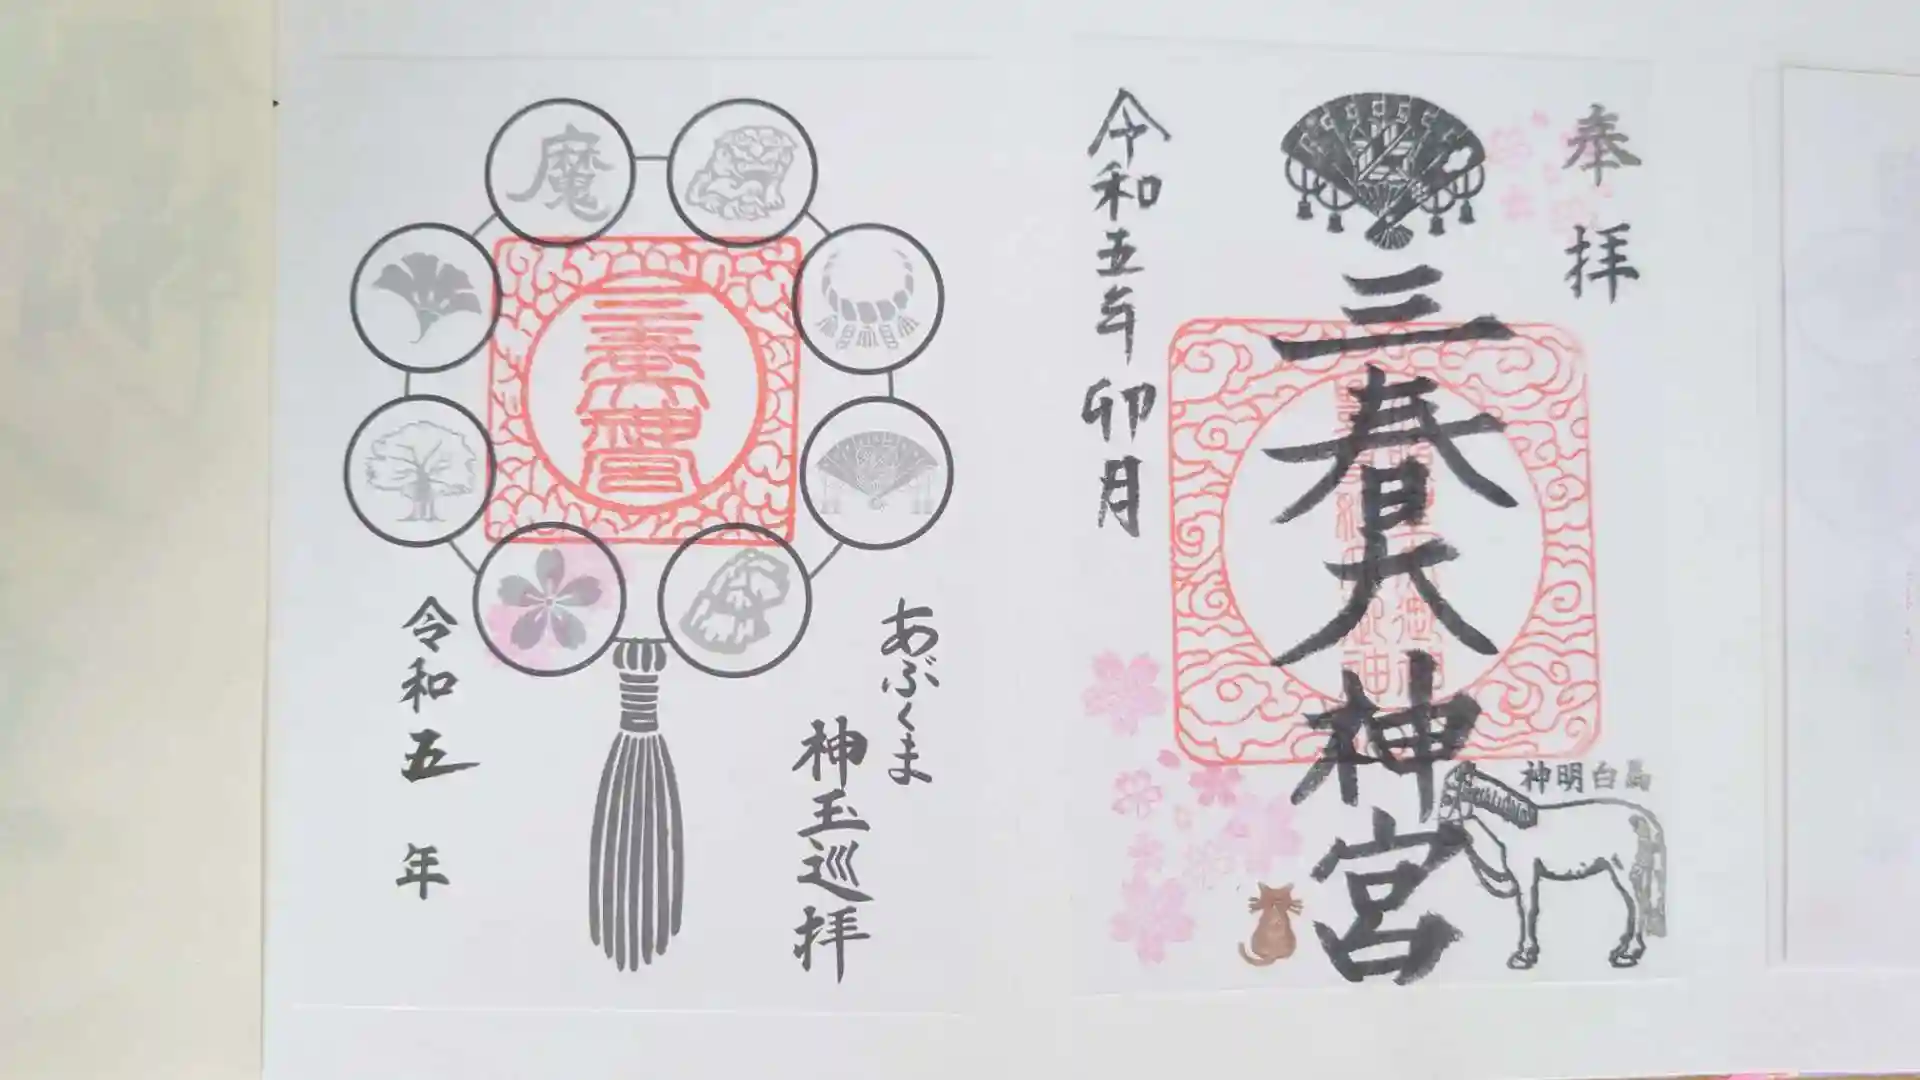 奉拝
三春大神宮
令和五年卯月
神明白馬
魔
三春大神宮
あぶくま
神玉巡拝
令和五年